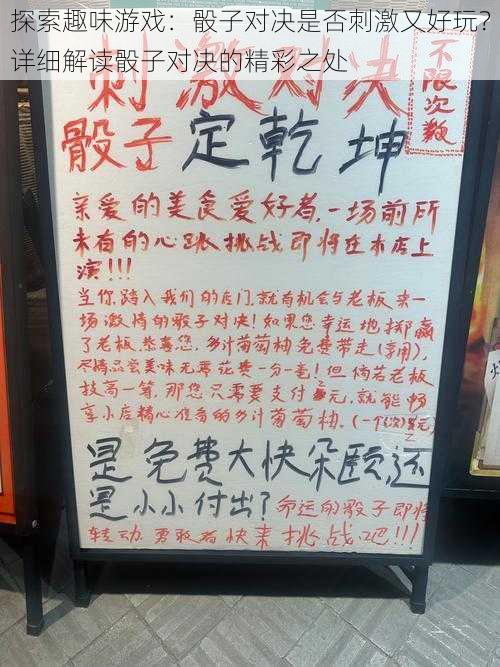 探索趣味游戏：骰子对决是否刺激又好玩？
详细解读骰子对决的精彩之处
刺激对决
不限次数
骰子定乾坤
亲爱的美食爱好者，一场前所
未有的心跳挑战即将在本店上
演！！！
当你踏入我们的店门，就有机会与老板来一
场激情的骰子对决！如果您幸运地掷赢
了老板，恭喜您，多汁葡萄柚免费带走(享用)，
尽情品尝美味无需花费一分一毫！但倘若老板
技高一筹，那您只需要支付2元，就能畅
享小店精心准备的多汁葡萄柚。(一个(次)2元)
是免费大快朵颐还
是小小付出？命运的骰子即将
转动 勇敢者快来挑战吧！！！